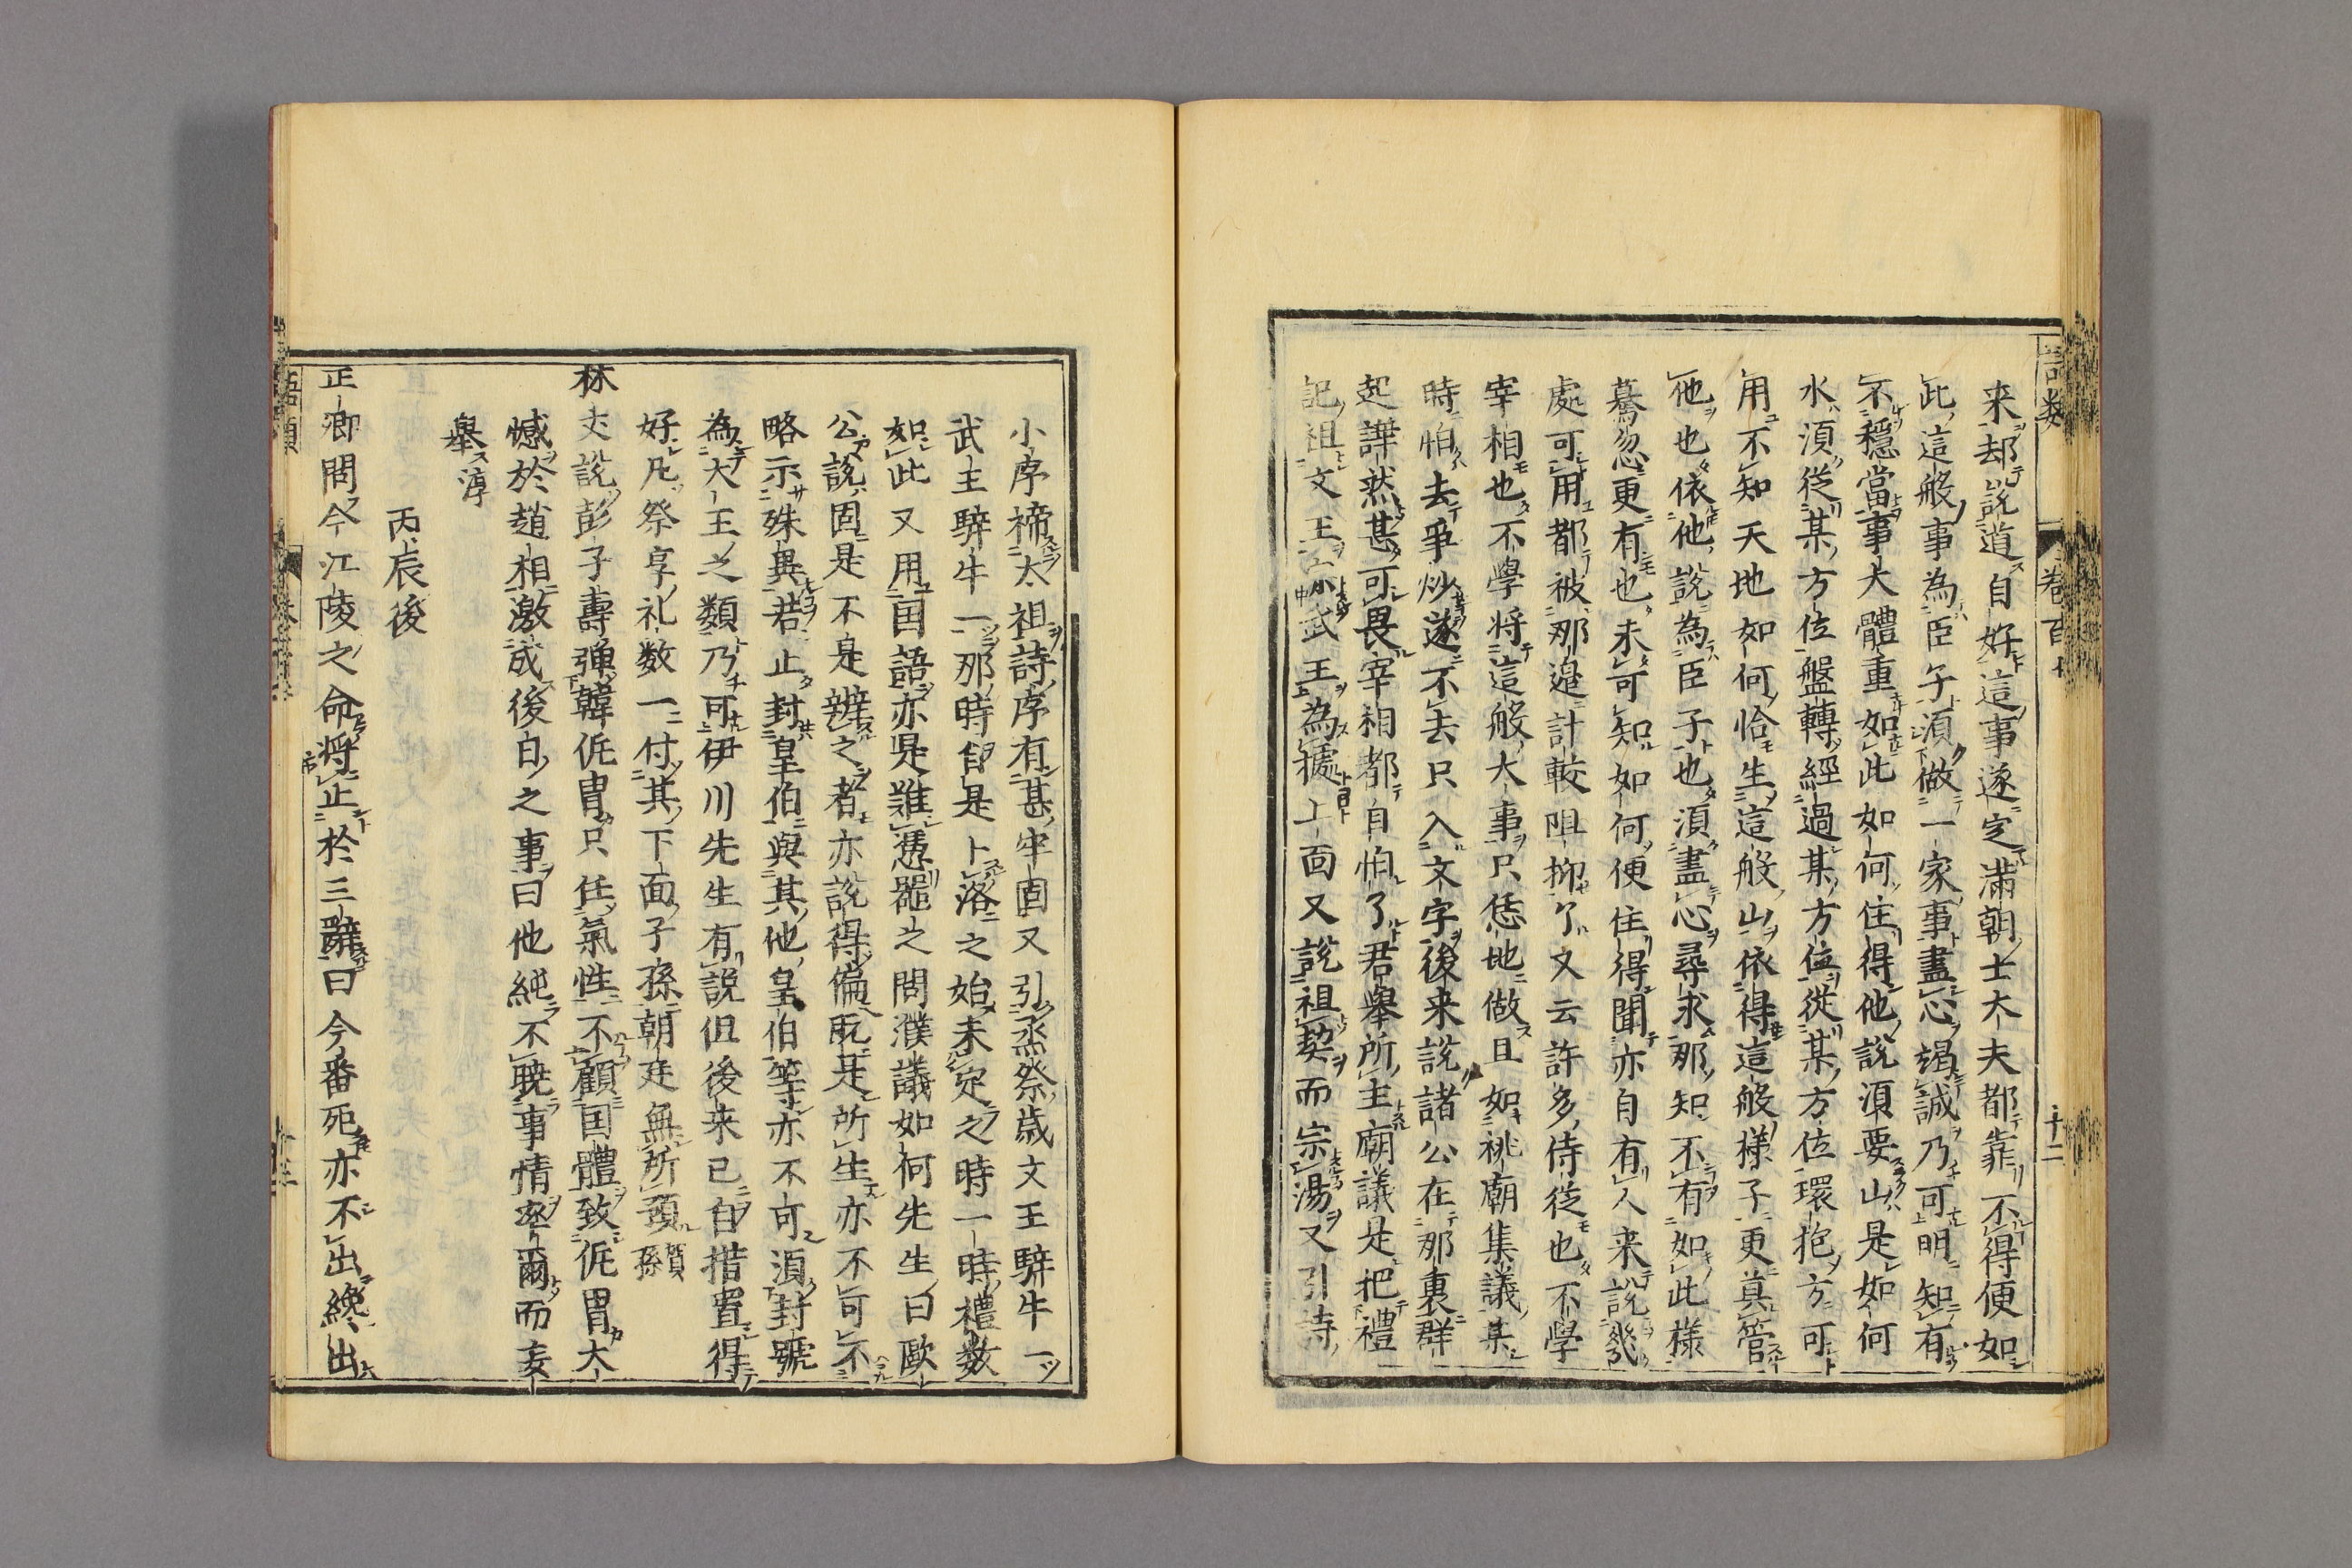 来却說道自好這事遂定滿朝士大夫都靠不得便如
此這般事為臣子須做一家事盡心竭誠乃可明知有
不穩當事大體重如此如何住得他說須要山是如何
水須從某方位盤轉經過某方位從某方位環抱方可
用不知天地如何恰生這般山依得這般樣子更真管
他也依他說為臣子也須盡心尋求那知不有如此樣
驀忽更有也未可知如何便住得聞亦自有人来說幾
處可用都被那邉計較阻抑了又云許多侍従也不學
宰相也不學将這般大事只恁地做且如祧廟集議某
時怕去爭炒遂不去只入文字後来說諸公在那裏群
起譁然甚可畏宰相都自怕了君舉所主廟議是把禮
記祖文王宗武王為據上面又說祖契而宗湯又引詩
小序禘太祖詩序有甚牢固又引烝祭歲文王騂牛一
武王騂牛一那時自是卜洛之始未定之時一時禮數
如此又用国語亦是難憑器之問濮議如何先生曰歐
公說固是不是辨之者亦說得偏既是所生亦不可不
略示殊異若止封皇伯與其他皇伯等亦不可須封號
為大王之類乃可伊川先生有説但後来已自措置得
好凡祭享礼数一付其下面子孫朝廷無所預賀孫
林丈說彭子壽彈韓侂冑只任氣性不顧国體致侂冑大
憾於趙相激成後日之事曰他純不曉事情率爾而妄
舉淳
丙辰後
正卿問今江陵之命将止於三辭曰今番死亦不出纔出
語類
卷百七
十二